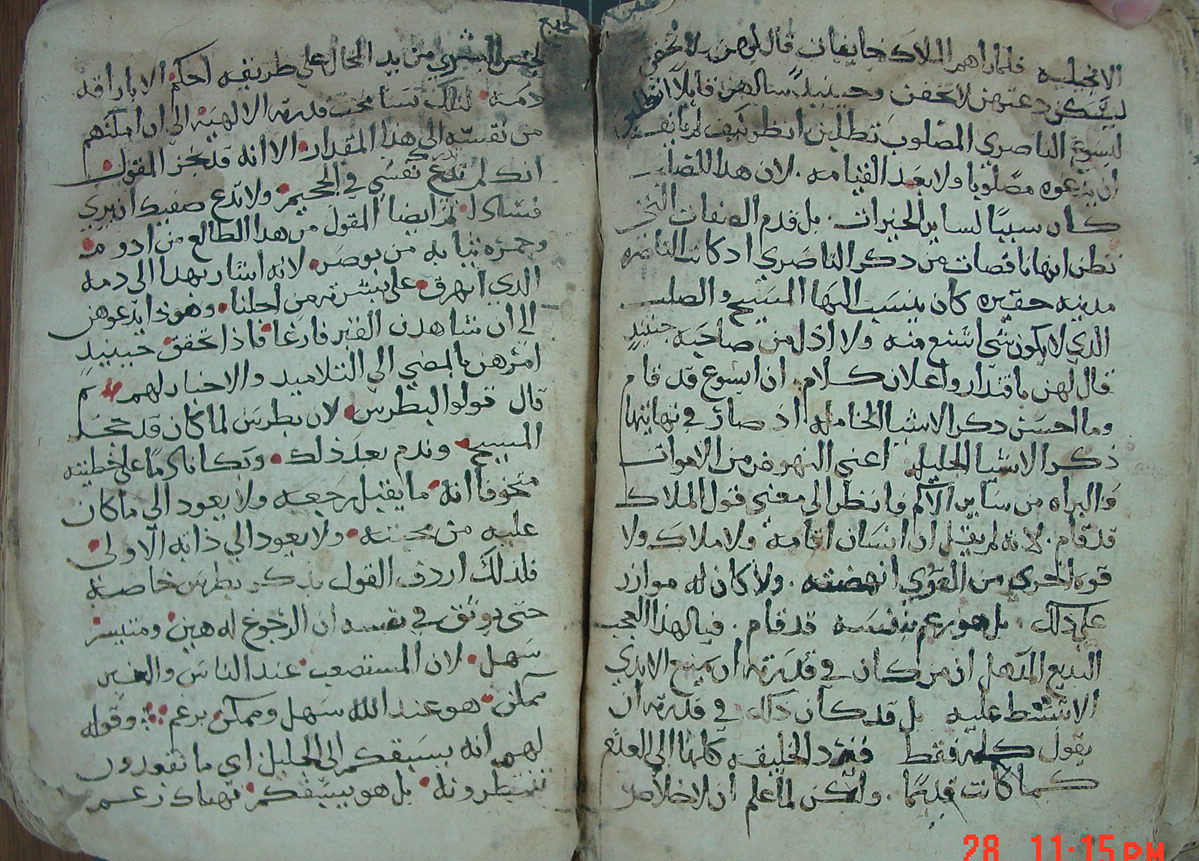 الانجيليه فلما راهم الملاك خايفات قال لهن لا تخفن
ليسكن دعتهن لا تخفن وحينيد سالهن قايلا
ليسوع الناصري المصلوب تطلبن انظر كيف لم يانف
ان يدعوه مصلوبا ولا بعد القيامه . لان هذا المصلوب
كان سببا لساير الخيرات . بل قدم الصفات التي
تظن انها ناقصات من ذكر الناصري اد كانت الناصره
مدينه حقيره كان ينسب اليها المسيح والصلب
الذي لا يكون شي اشنع منه ولا اذل من صاحبه حينيد
قال لهن باقتدار واعلان كلام . ان ايسوع قد قام
وما احسن ذكر الاشيا الخامله اد صار في نهايتها
ذكر الاشيا الجليله اعني النهوض من الاموات
والبراه من ساير الالام فانظر الى معنى قول الملاك
قد قام . لانه لم يقل ان انسان اقامه ولا ملاك ولا
قوه اخرى من القوي انهضته . ولا كان له موازر
على ذلك . بل هو بزعم بنفسه قد قام . فيا لهذا العجب
البديع المذهل ان من كان في قدرته ان يمنع الايدي
الا تتسلط عليه بل قد كان ذلك في قدرته ان
يقول كلمه فقط فترد الخليقه كلها الى العدم
كما كانت قديما . ولكن لما علم ان لا خلاص
لجنس البشري من يد المحال على طريقه احكم الا باراقة
دمه . لذلك تسامحت قدرته الالهيه الى ان امكنهم
من نفسه الى هذا المقدار . الا انه قد نجز المقول
انك لم تدع نفسي في الجحيم . ولا تدع صفيك ان يري
فسادا . ثم ايضا المقول من هذا الطالع من ادوم
وحمره ثيابه من بوصر . لانه اشار بهذا الى دمه
الذي انهرق على بشرته من اجلنا . وهوذا يدعوهن
الى ان شاهدن القبر فارغا فاذا تحقق حينيد
امرهن بالمضي الى التلاميد والاخبار لهم . ثم
قال قولوا لبطرس . لان بطرس لما كان قد جحد
المسيح . وندم بعد ذلك . وبكا نادما على خطيته
متخوفا انه ما يقبل رجعه ولا يعود الى ما كان
عليه من محبته . ولا يعود الى ذاته الاولى
فلذلك اردف القول بذكر بطرس خاصة
حتى يوثق في نفسه ان الرجوع له هين . ومتيسر
سهل . لان المستصعب عند الناس والغير
ممكن . هو عند الله سهل وممكن بزعم . وقوله
لهم انه يسبقكم الى الجليل اي ما تقودون
تنتظرونه . بل هو يسبقكم . نهناك زعم
28 11:15 PM